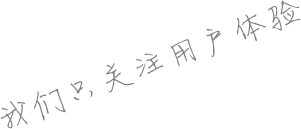 我们只关注用户体验